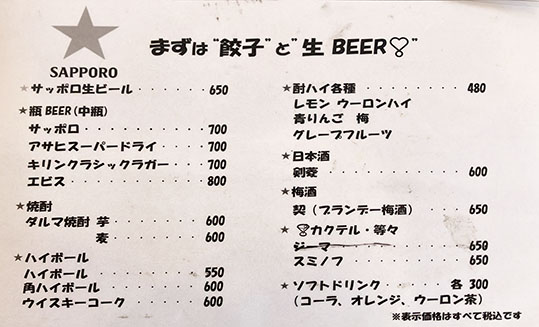 まずは "餃子" と "生 BEER"
SAPPORO
★サッポロ生ビール・・・・・・・650
★瓶BEER(中瓶)
サッポロ・・・・・・・・・・・700
アサヒスーパードライ・・・・700
キリンクラシックラガー・・・700
エビス・・・・・・・・・・・・800
★焼酎
ダルマ焼酎 芋・・・・・・・・600
麦・・・・・・・・600
★ハイボール
ハイボール・・・・・・・・550
角ハイボール・・・・・・・600
ウイスキーコーク・・・・・600
★酎ハイ各種・・・・・・・・480
レモン ウーロンハイ
青りんご 梅
グレープフルーツ
★日本酒
剣菱・・・・・・・・・・・・600
★梅酒
契(ブランデー梅酒)・・・・650
★カクテル・等々
ジーマ 650
スミノフ・・・・・・・・・・650
★ソフトドリンク・・・・・各 300
(コーラ、オレンジ、ウーロン茶)
※表示価格はすべて税込です